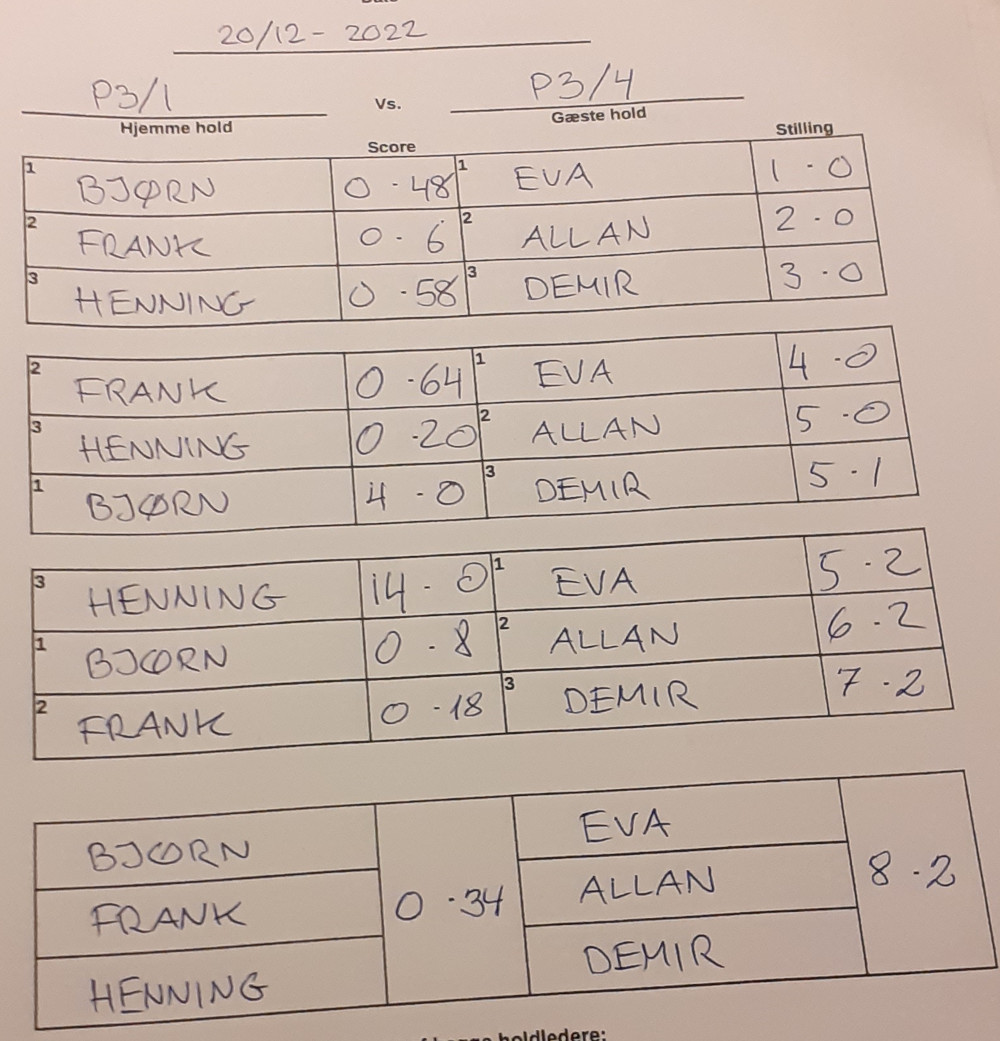 20/12 - 2022
P3/1 Vs. P3/4
Hjemme hold Gæste hold
Score Stilling
1 BJØRN 0 - 48 1 EVA 1 - 0
2 FRANK 0 - 6 2 ALLAN 2 - 0
3 HENNING 0 - 58 3 DEMIR 3 - 0
2 FRANK 0 - 64 1 EVA 4 - 0
3 HENNING 0 - 20 2 ALLAN 5 - 0
1 BJØRN 4 - 0 3 DEMIR 5 - 1
3 HENNING 14 - 0 1 EVA 5 - 2
1 BJØRN 0 - 8 2 ALLAN 6 - 2
2 FRANK 0 - 18 3 DEMIR 7 - 2
BJØRN EVA
FRANK 0 - 34 ALLAN 8 - 2
HENNING DEMIR
holdledere: